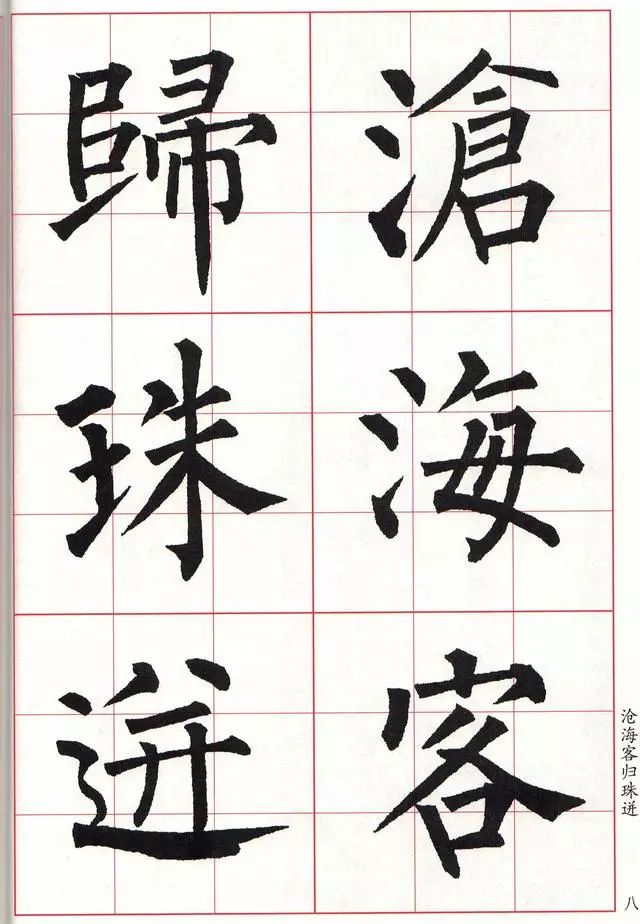 滄海客
歸珠迸
沧海客归珠迸
八